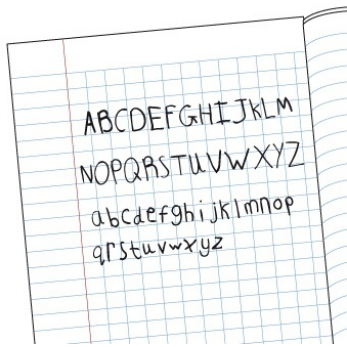 ABCDEFGHIJKLM
NOPQRSTUVWXYZ
abcdefghijklmnop
qrstuvwxyz